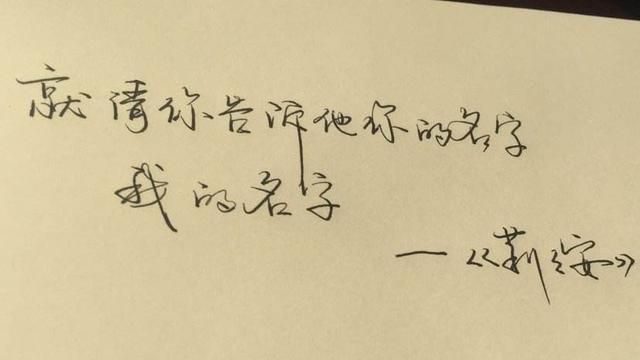 就请你告诉他你的名字
我的名字
—《莉安》